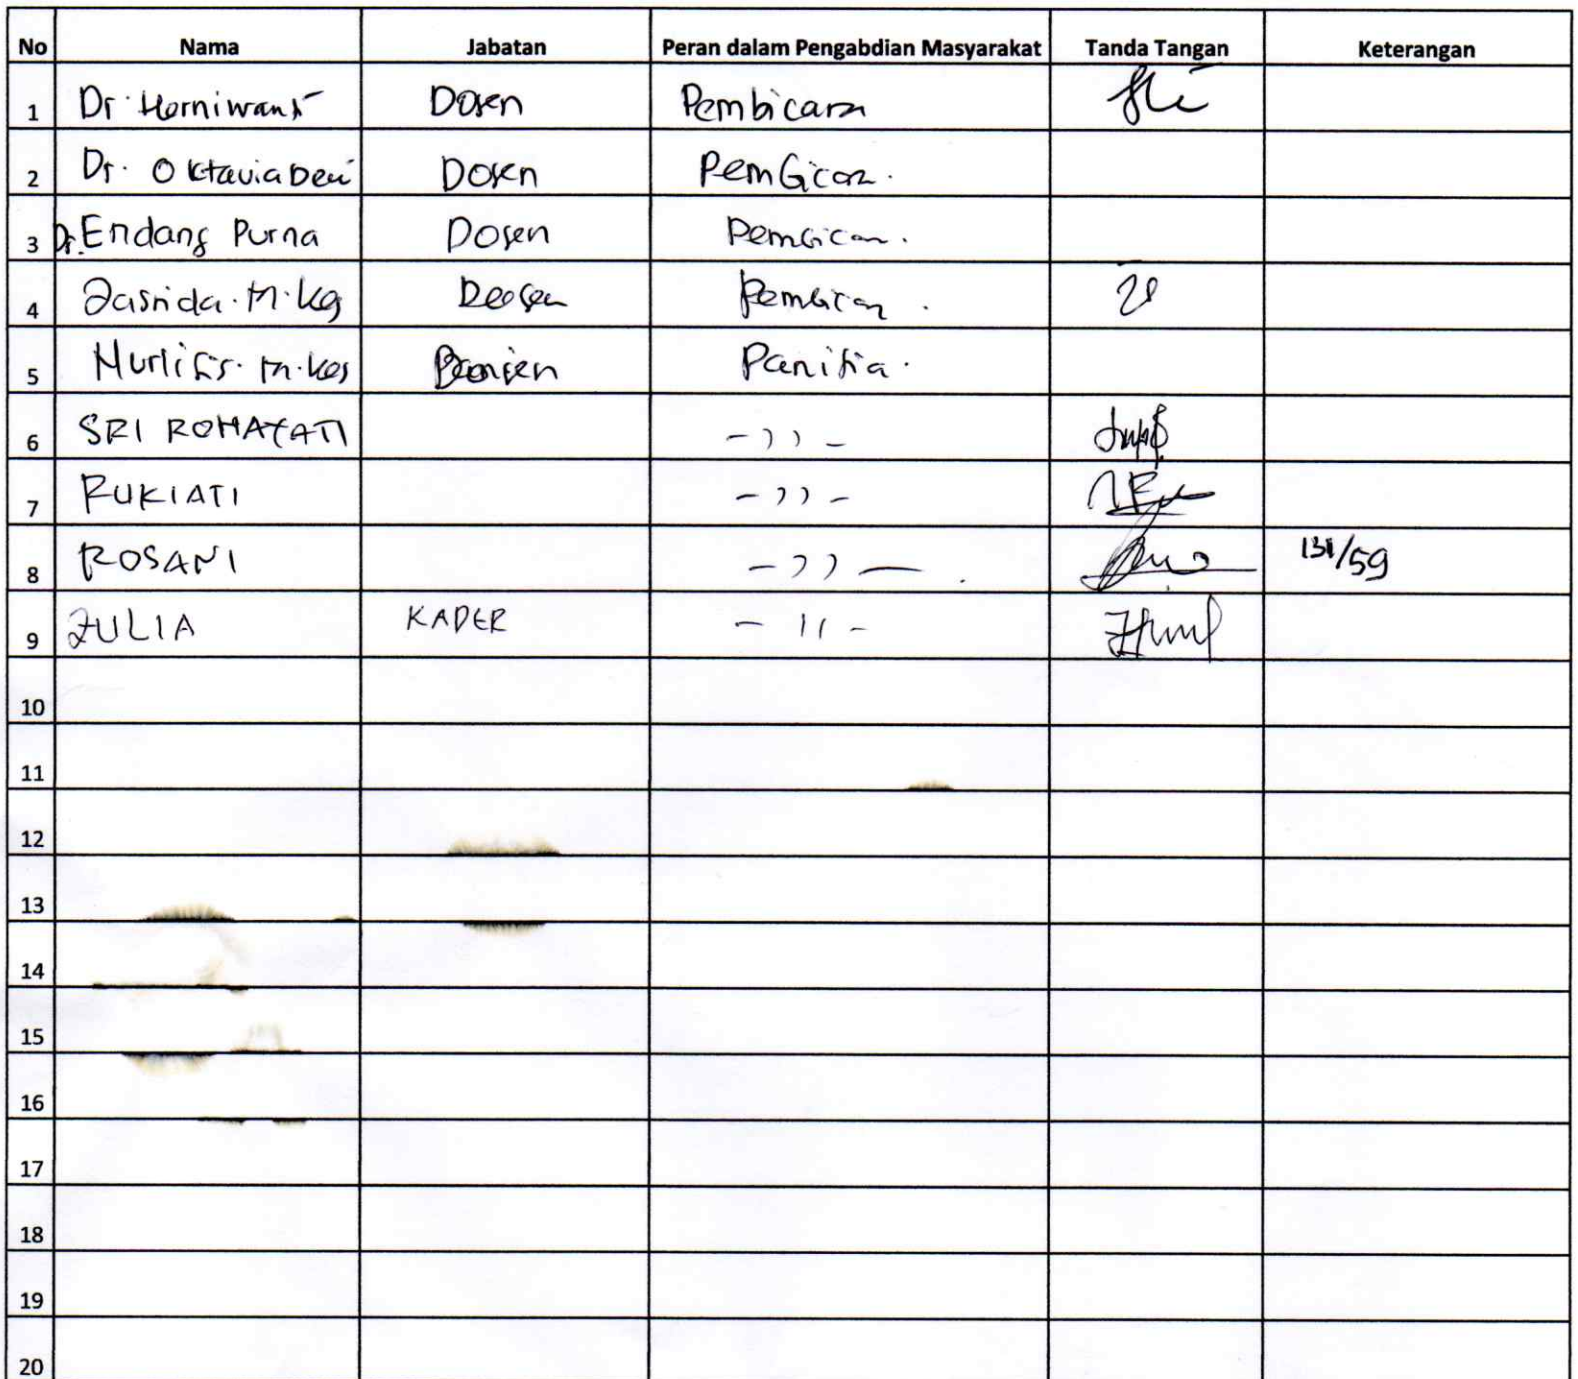 No Nama Jabatan Peran dalam Pengabdian Masyarakat Tanda Tangan Keterangan
1 Dr. Herniwanti Dosen Pembicara
2 Dr. Oktavia Deni Dosen Pembicara.
3 Dr. Endang Purna Dosen Pembicara.
4 Jasrida. M. Kes Dosen Pembicara.
5 M. Kes Panitia.
6 SRI ROHAYATI - )) -
7 RUKIATI - )) -
8 ROSANI - )) - 131/59
9 ZULIA KADER - 11 -
10
11
12
13
14
15
16
17
18
19
20